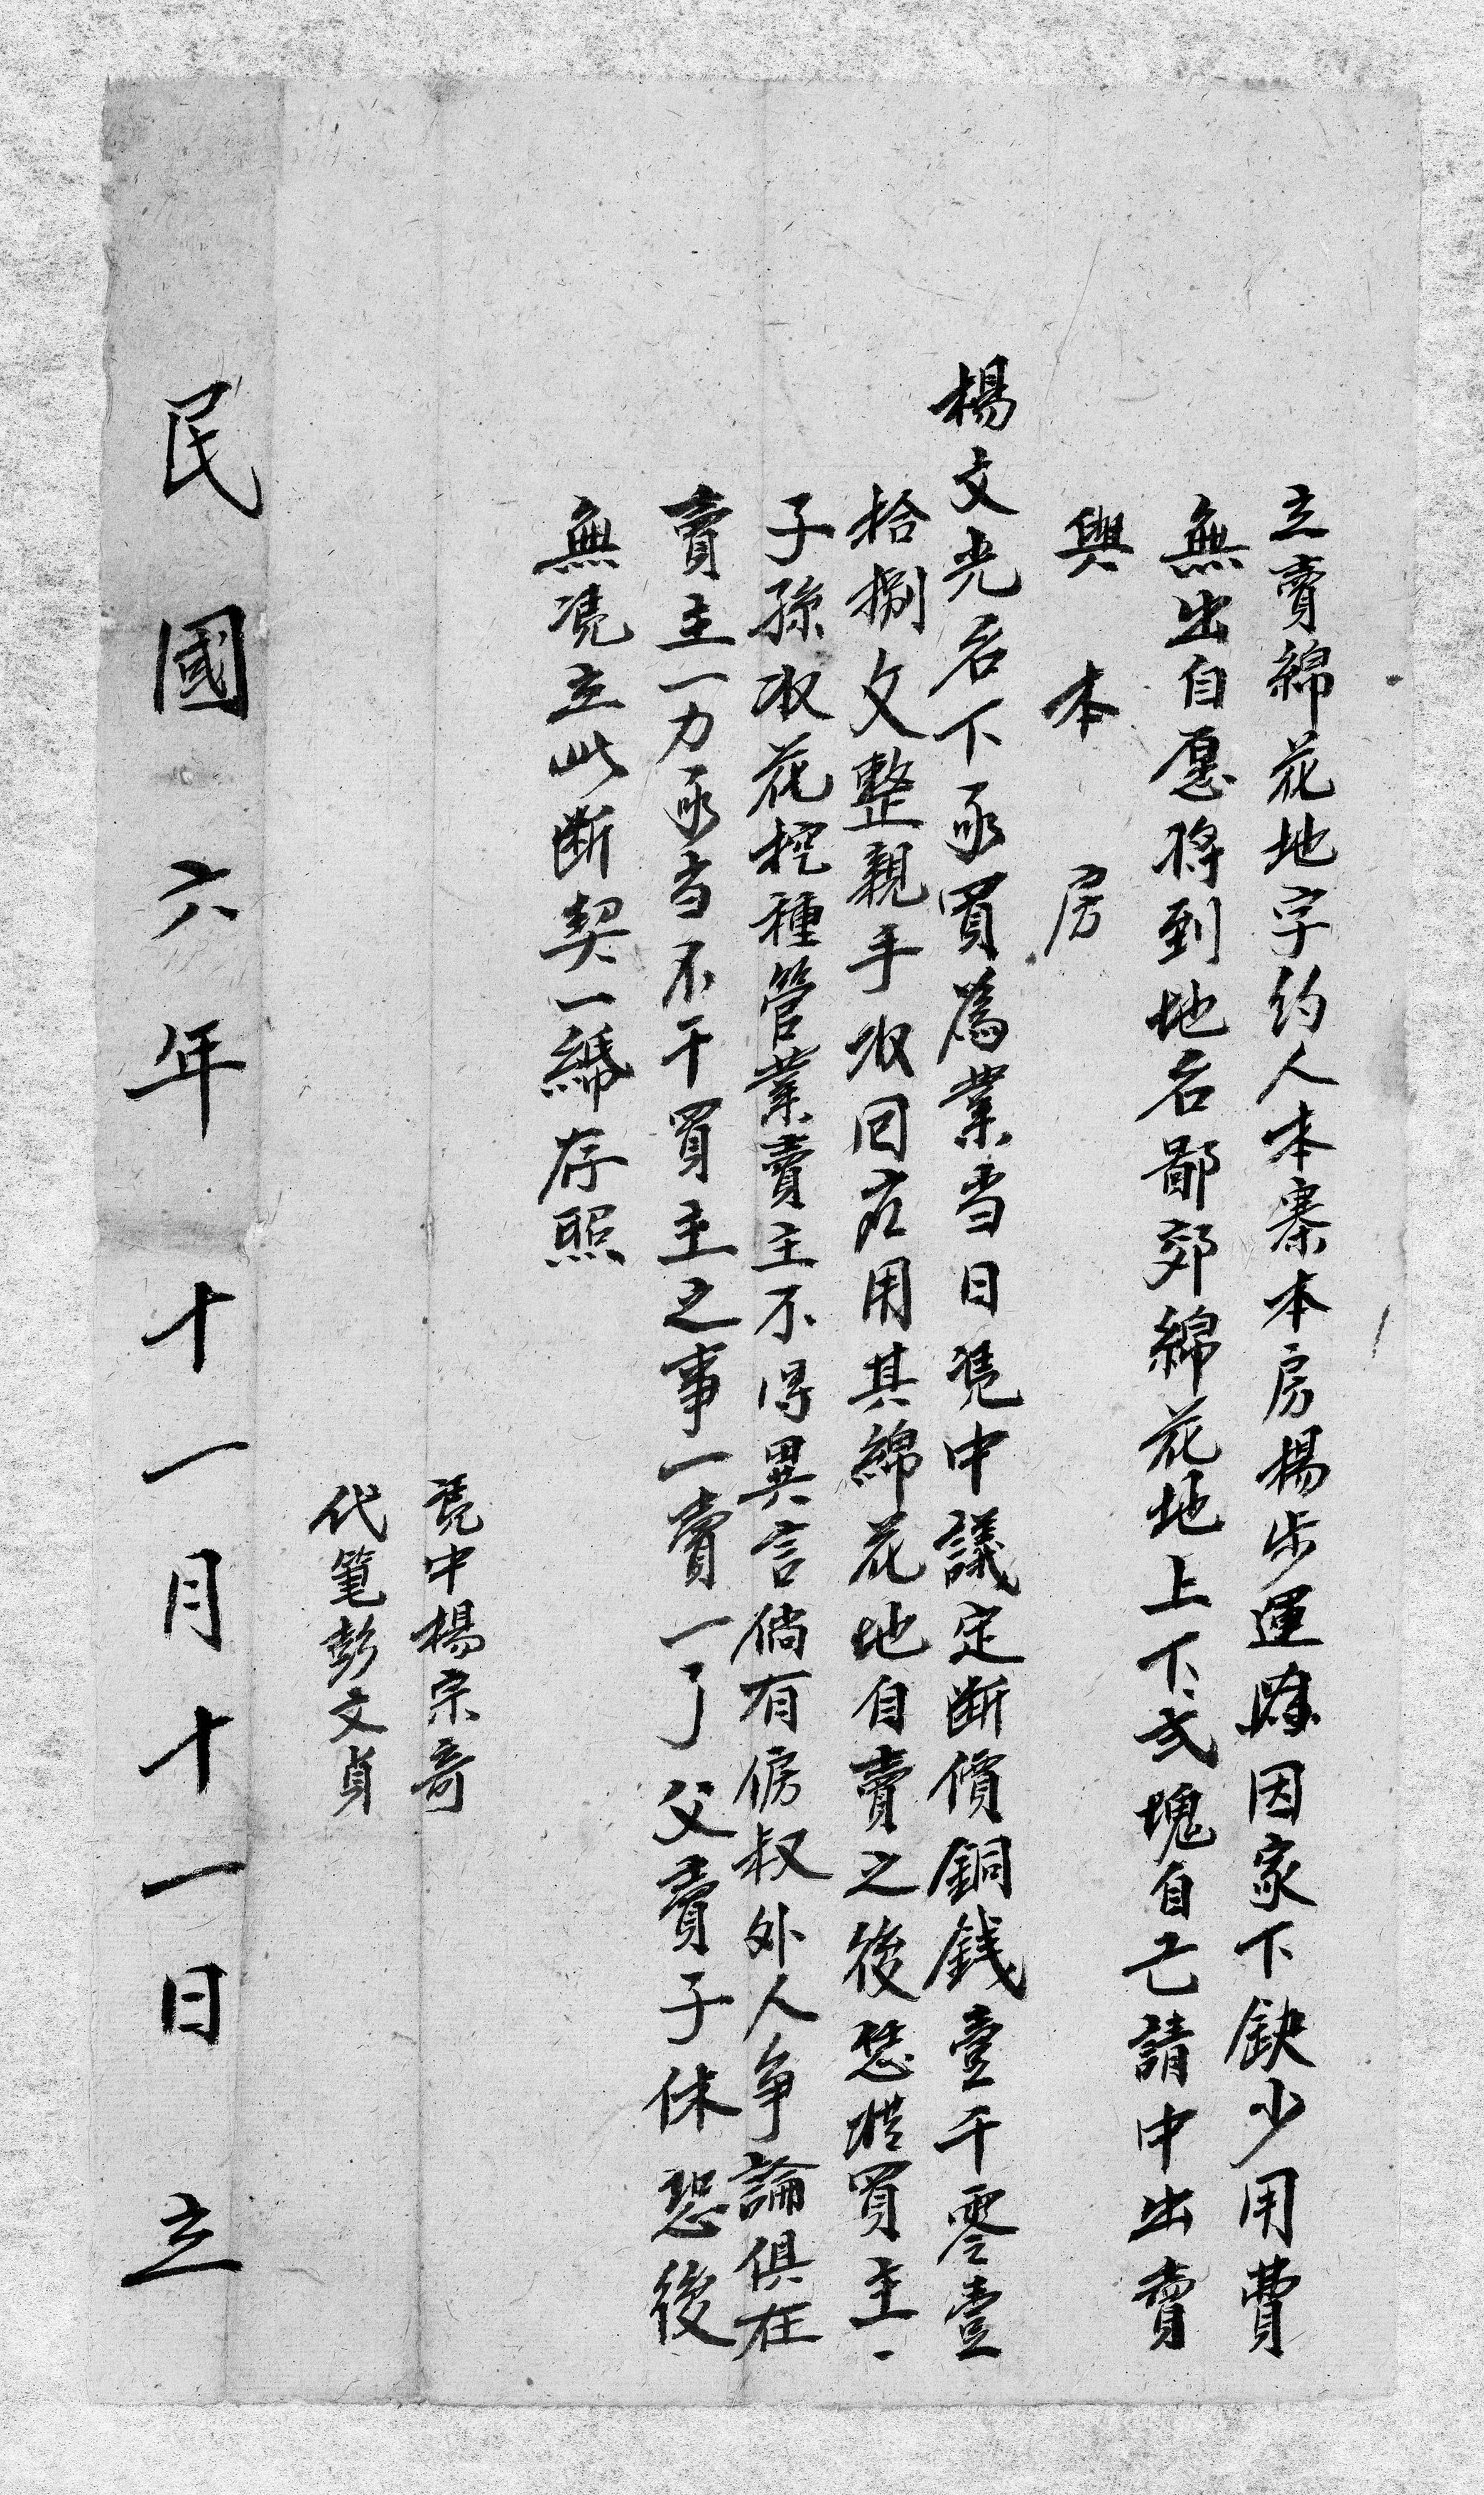 立賣綿花地字約人本寨本房楊步運 因家下缺少用費
無出自愿將到地名鄙郊綿花地上下弍塊自己請中出賣
與本房
楊文光名下承買為業当日凴中議定断價銅錢壹千零壹
拾捌文整親手收回应用其綿花地自賣之後恁從買主
子孫收花挖種管業賣主不得異言倘有房叔外人争論俱在
賣主一力承当不干買主之事一賣一了父賣子休恐後
無凴立此断契一紙存照
凴中楊宗奇
代筆彭文貞
民國六年十一月十一日立